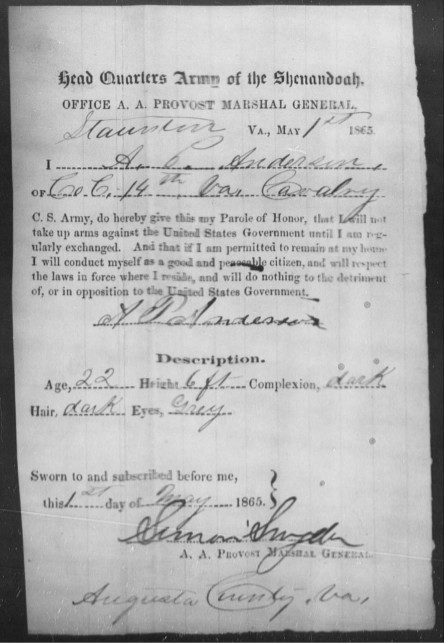 Head Quarters Army of the Shenandoah,
OFFICE A. A. PROVOST MARSHAL GENERAL,
Staunton VA., MAY 1st 1865.
I A. C. Anderson,
OF Co C. 14th Va. Cavalry
C. S. Army, do hereby give this my Parole of Honor, that I will not
take up arms against the United States Government until I am reg-
ularly exchanged. And that if I am permitted to remain at my home
I will conduct myself as a good and peaceable citizen, and will respect
the laws in force where I reside, and will do nothing to the detriment
of, or in opposition to the United States Government.
Anderson
Description.
Age, 22 Height 6 ft Complexion, dark
Hair, dark Eyes, Grey
Sworn to and subscribed before me,
this 1st day of May 1865.
Simon Snyder
A. A. PROVOST MARSHAL GENERAL.
Augusta County. Va,